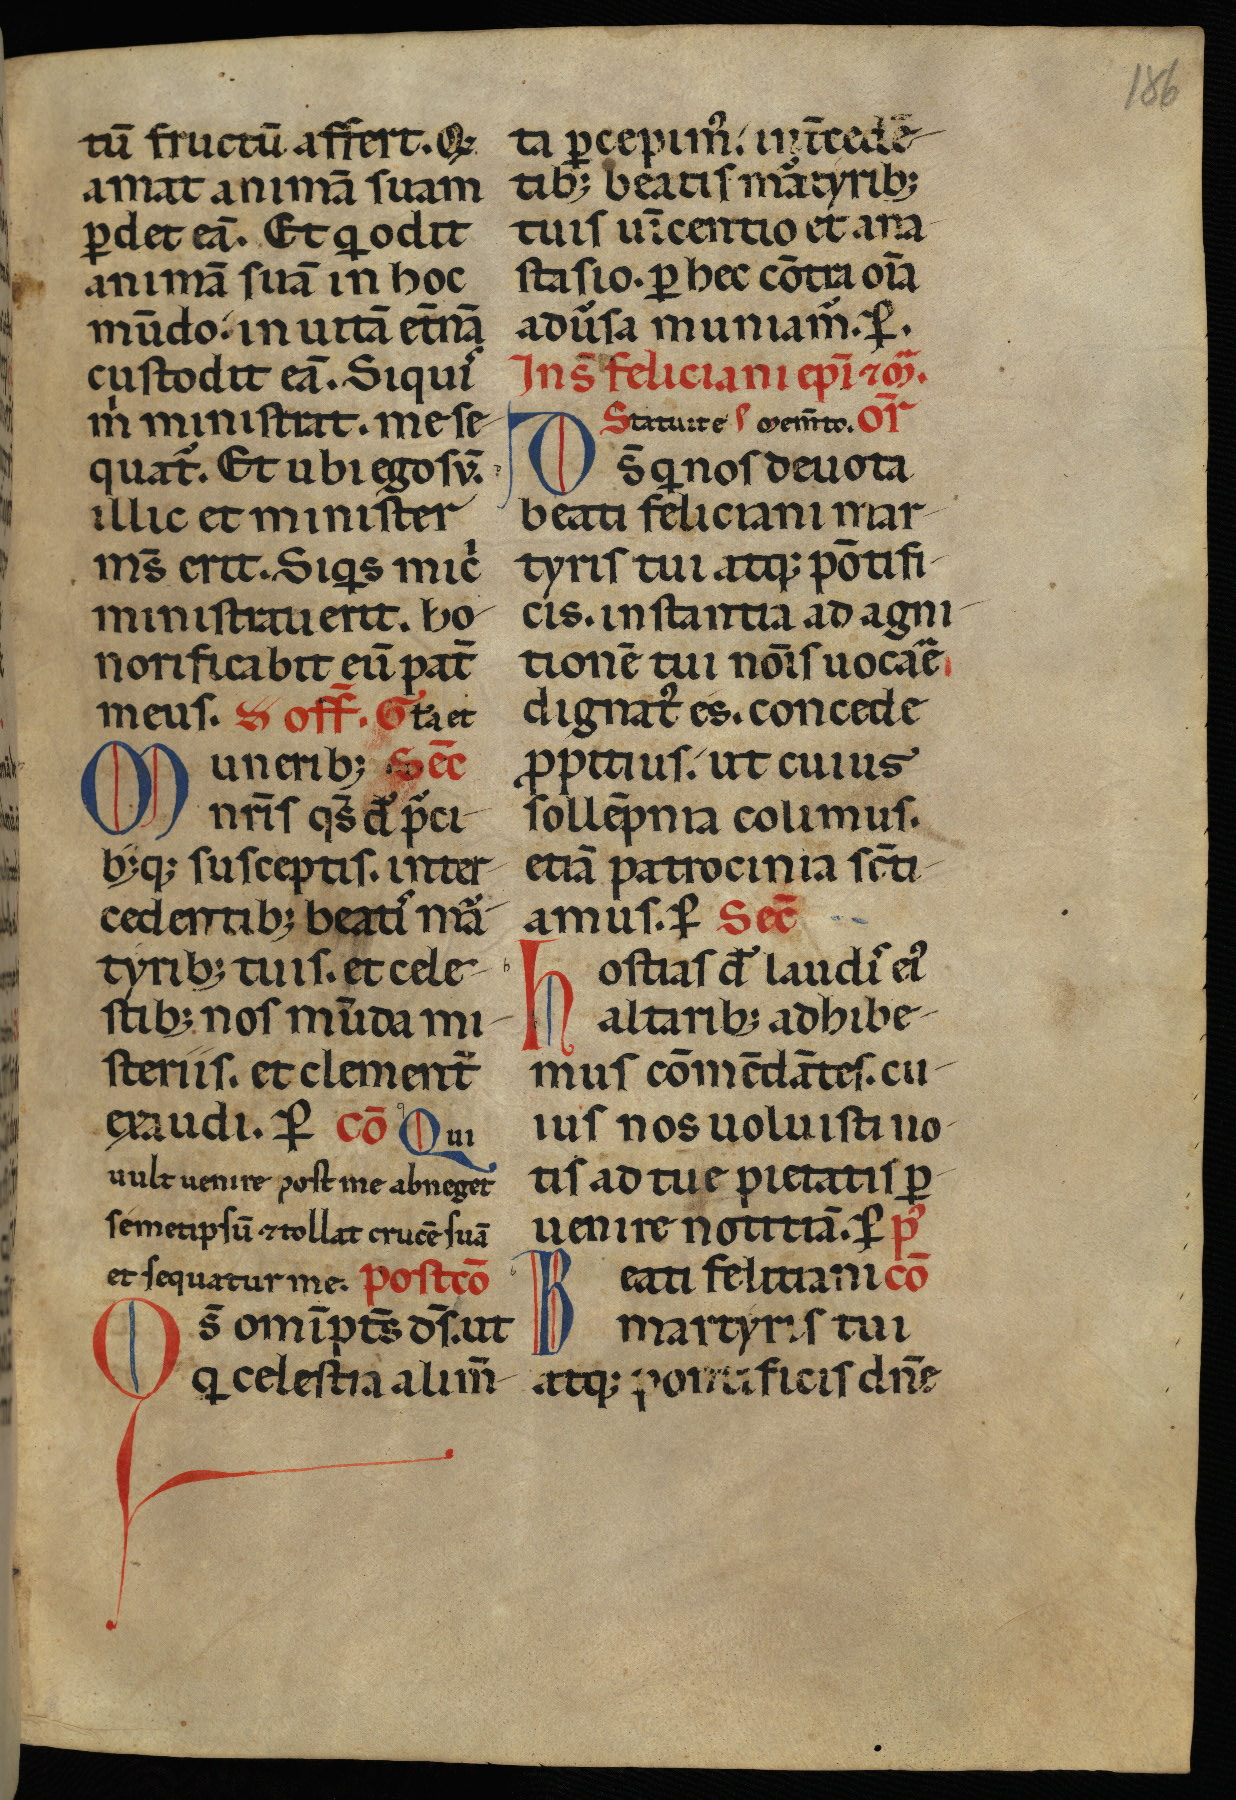 186
tū fructū affert. Q̄
amat animā suam
ꝑdet eā. Et q odit
animā suā in hoc
mūdo: in uitā et̄nā
custodit eā. Siquis
m ministrat. me se
quat̄. Et ubi ego sū.
illic et minister
ms̄ erit. Siqͥs mic
ministrauerit. ho
norificabit eū pat̄
meus. S off̄. Gl̄a et
Munerib; Sec̄
nr̄is qs̄ d̄ p̄ci
b;q; susceptis. inter
cedentib; beatis mar
tyrib; tuis. et cele
stib; nos mūda mi
steriis. et clement̄
exaudi. ꝑ Cō Qui
uult uenire post me abneget
semetipsū ⁊ tollat crucē suā
et sequatur me. Postcō
Qs̄ omīpt̄s ds̄. ut
q celestia alim̄
ta ꝑcepim᷒. int̄cedē
tib; beatis martyrib;
tuis uīcentio et ana
stasio. ꝑ hec cōtra oīa
adusa muniam᷒. ꝑ.
In s̄ feliciani ep̄i ⁊ m̄.
Statuit e ꝭ mem̄to. Or̄
Ds̄ q nos deuota
beati feliciani mar
tyris tui atq; pōtifi
cis. instantia ad agni
tionē tui nōis uocare
dignat᷒ es. concede
ꝓpitius. ut cuius
sollēpnia colimus.
etiā patrocinia sc̄ti
amus. ꝑ Sec̄
hostias d̄ laudis ei᷒
altarib; adhibe
mus cōmēdātes. cu
ius nos uoluisti uo
tis ad tue pietatis ꝑ
uenire notitiā. ꝑ p᷒
Beati felitiani cō
martyris tui
atq; pontificis dn̄e